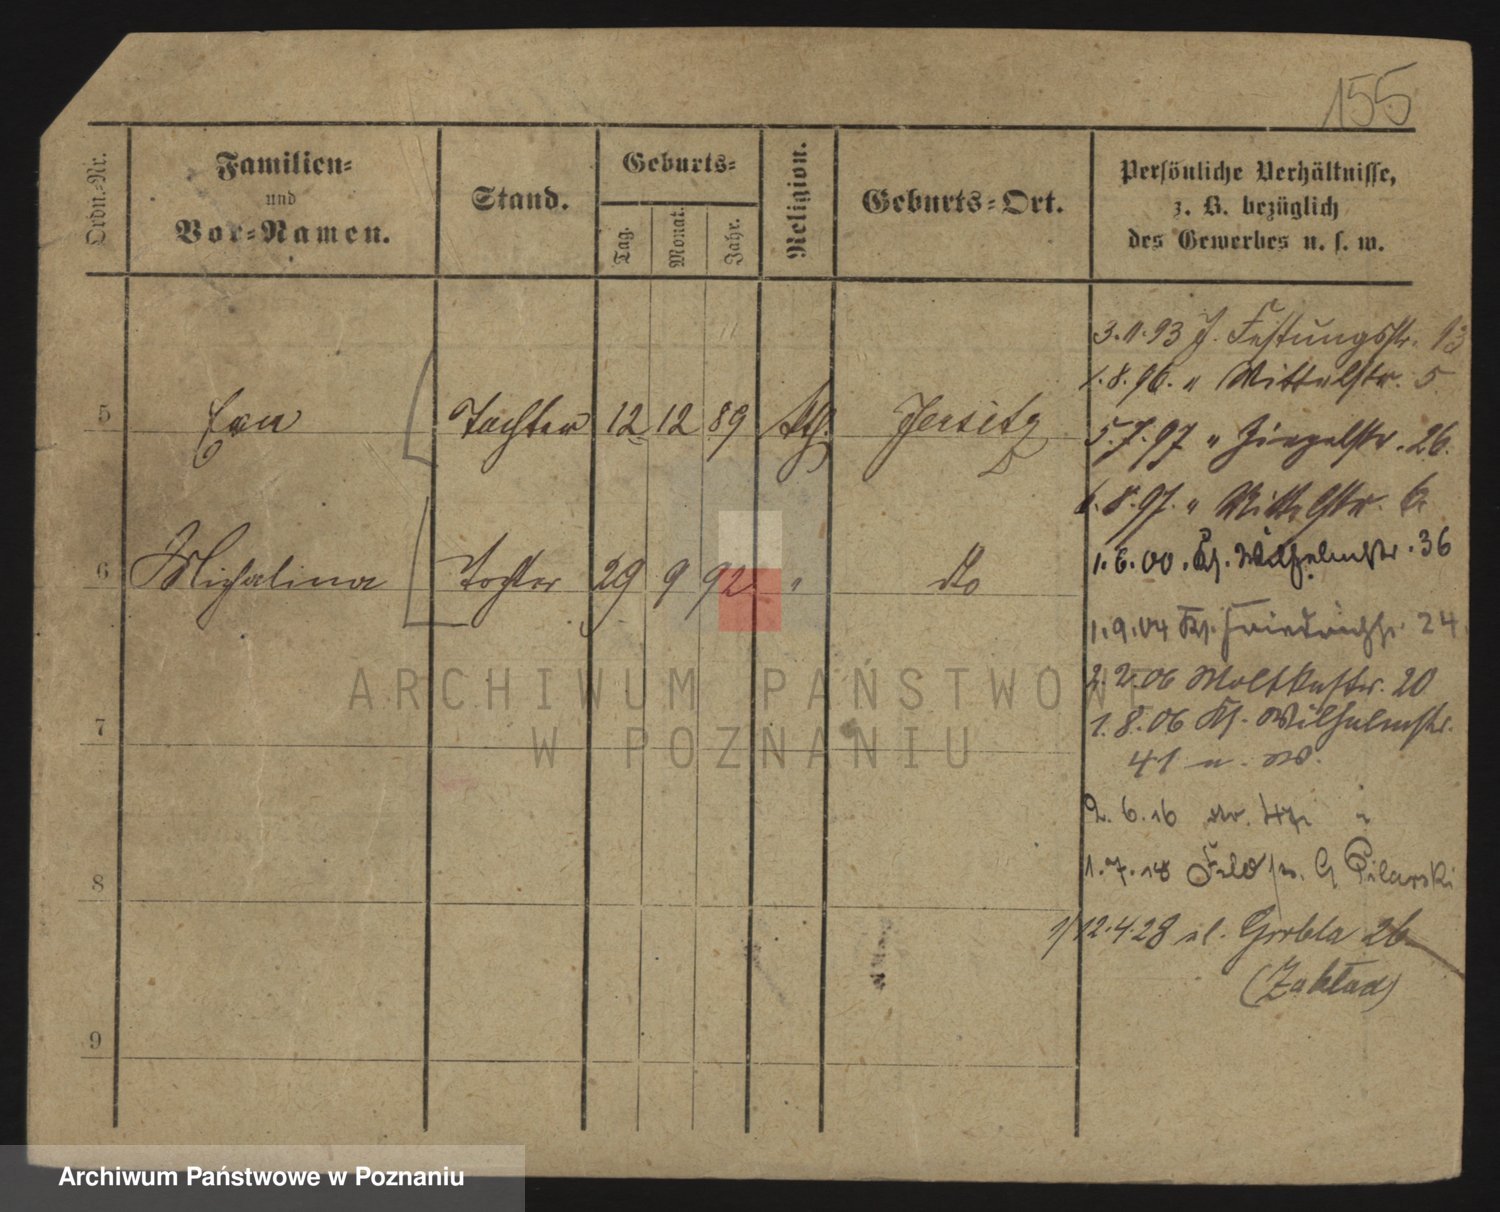 155
Ordn.-Nr.
Familien-
und
Vor-Namen.
Stand.
Geburts-
Tag.
Monat.
Jahr.
Religion.
Geburts-Ort.
Persönliche Verhältnisse,
z. B. bezüglich
des Gewerbes u. s. w.
3.11.93 J. Festungsstr. 13
1.8.96. " Mittelstr. 5
5 Eva Tochter 12 12 89 kth. Jersitz
5.7.97 " Ziegelstr. 26.
1.8.97. " Mittelstr.
6 Michalina Tochter 29 9 92 " do
1.6.00. Kl. Wilhelmstr. 36
1.9.04 Kl. Friedrichstr. 24
2.2.06 Moltkestr. 20
7
1.8.06 Kl. Wilhelmstr.
41 n. W.
2.6.16
8
1.7.18 Feldstr. Pilarski
12.4.28 ul. Grobla 26
(Zakład)
9
ARCHIWUM PAŃSTWOWE
W POZNANIU
Archiwum Państwowe w Poznaniu